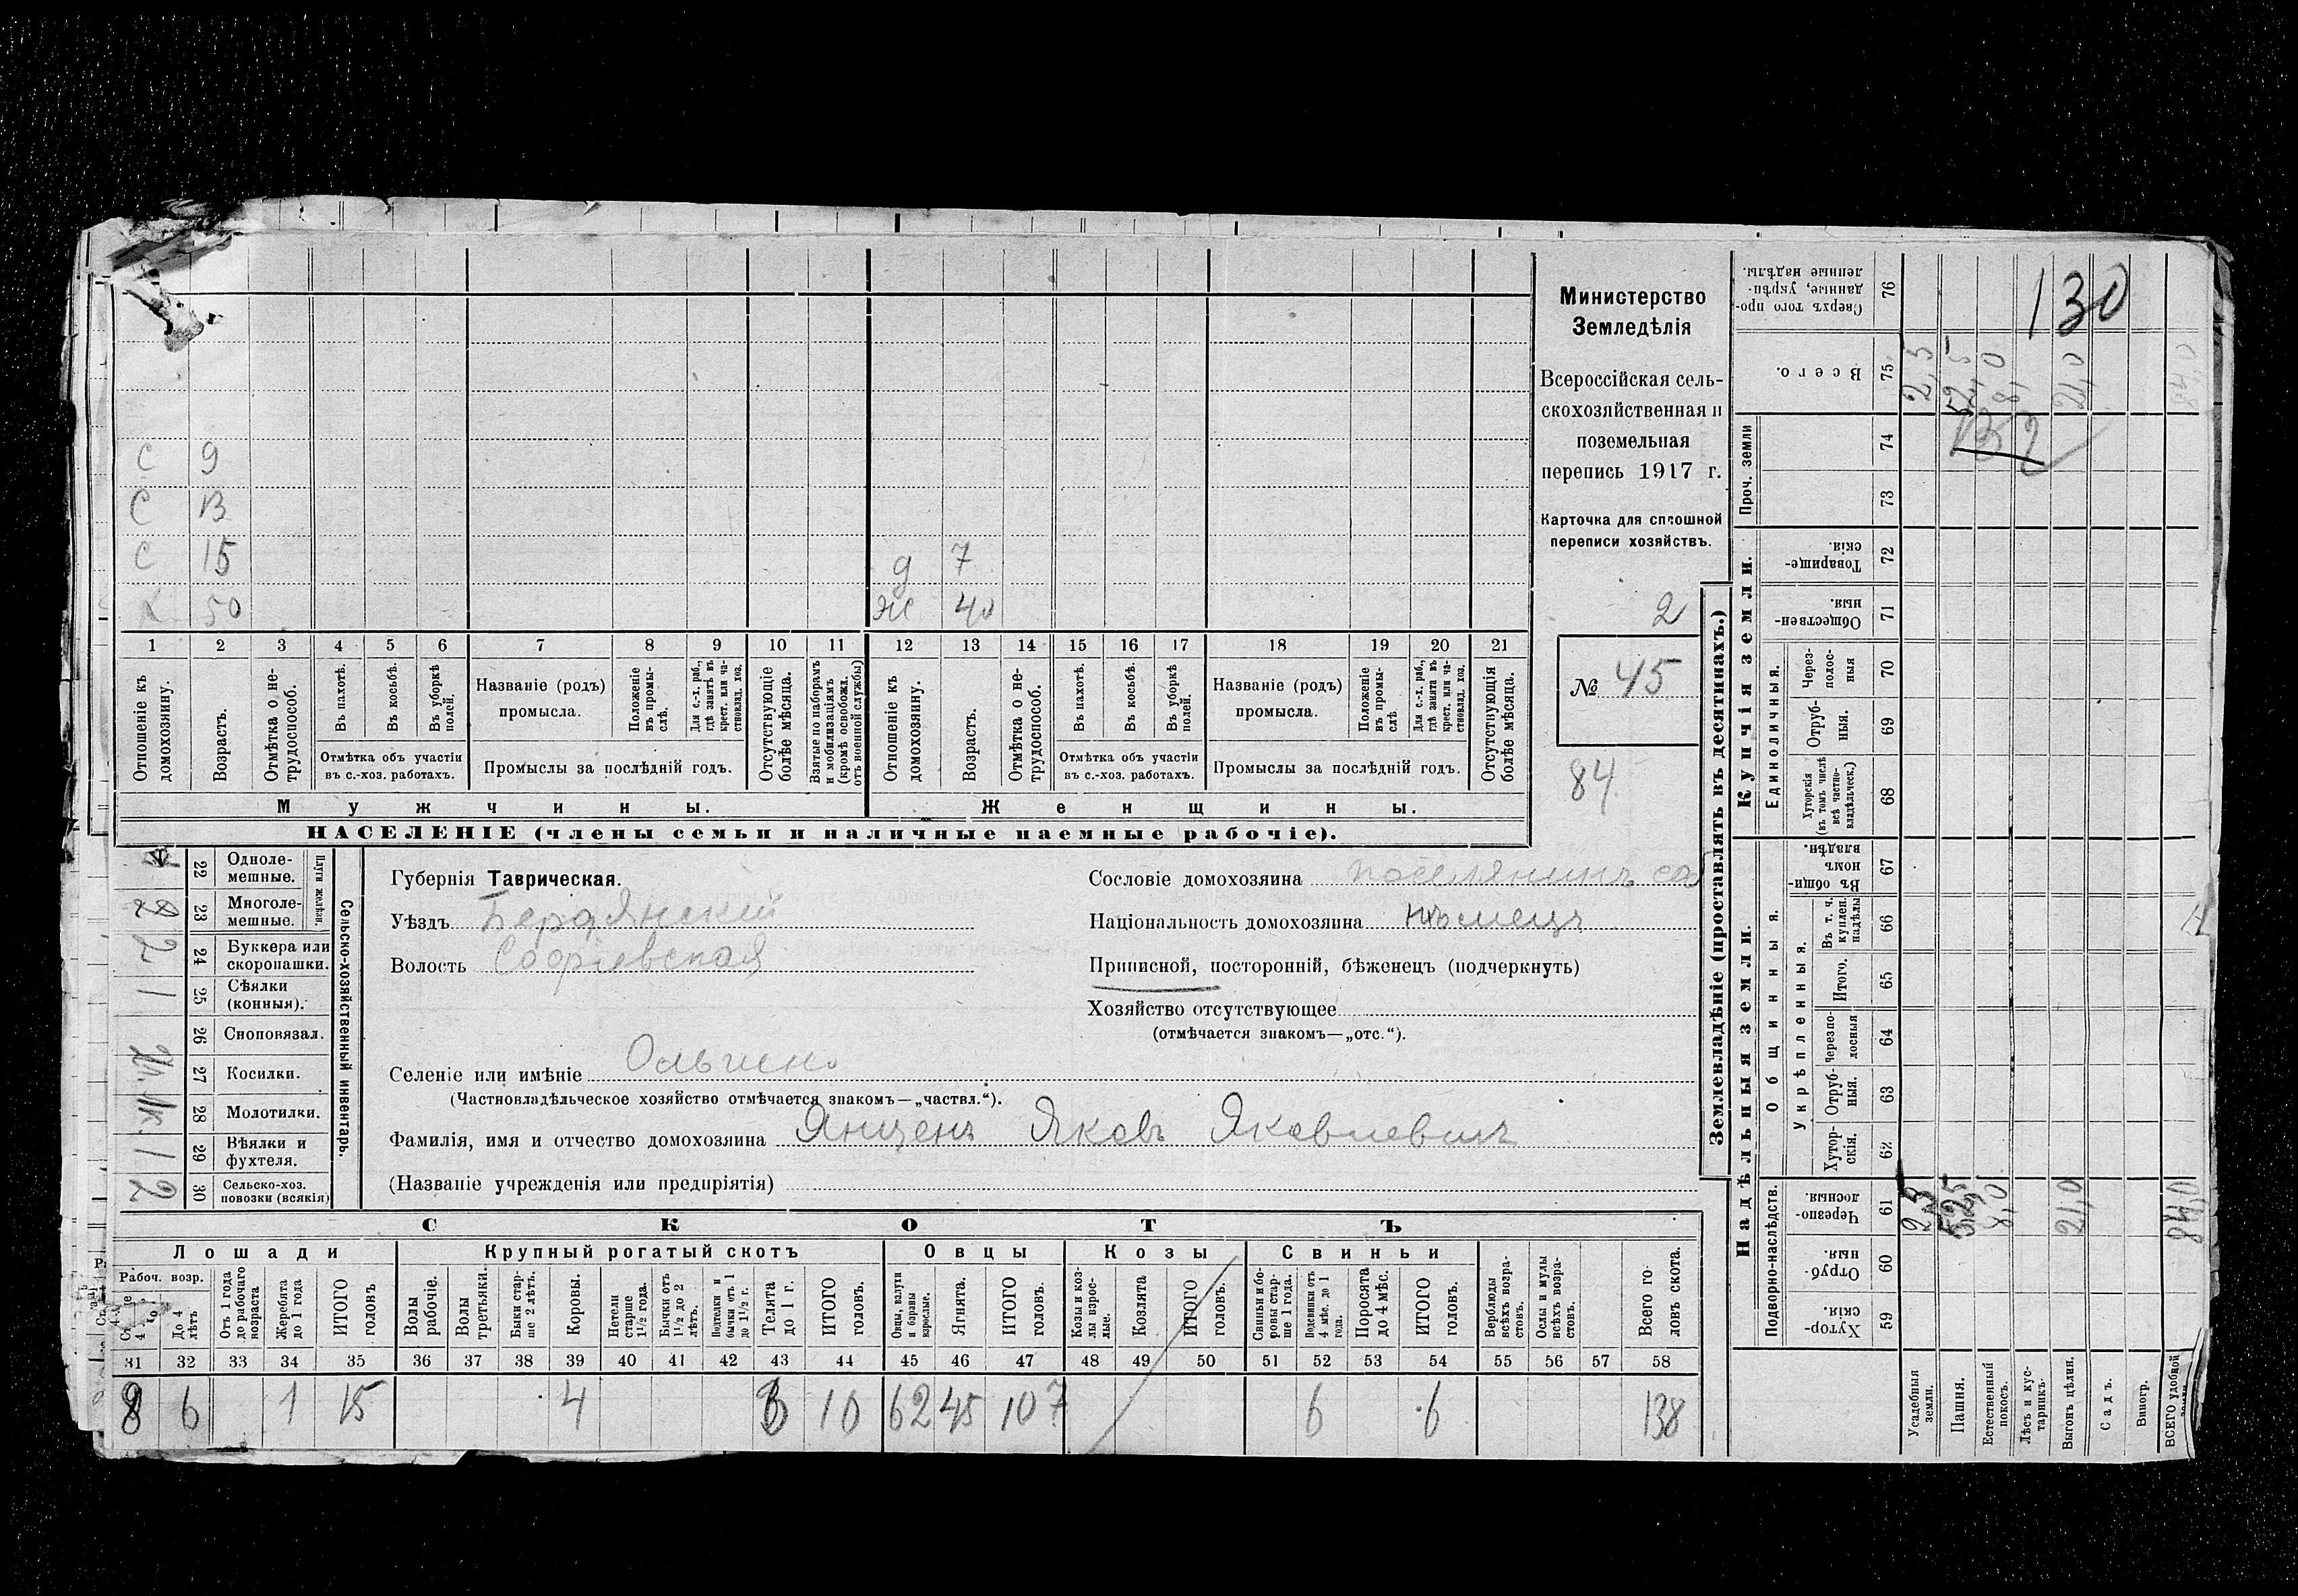 С 9
С 13
С 15 д 7
Х 50 ж 40
1 2 3 4 5 6 7 8 9 10 11 12 13 14 15 16 17 18 19 20 21
Отношеніе къ домохозяину.
Возрастъ.
Отмѣтка о нетрудоспособ.
Въ пахотѣ.
Въ косьбѣ.
Въ уборкѣ полей.
Отмѣтка объ участіи
въ с.-хоз. работахъ.
Названіе (родъ)
промысла.
Положеніе въ промыслѣ.
Для с.-х. раб., гдѣ занятъ въ крест. или частновлад. хоз.
Промыслы за послѣдній годъ.
Отсутствующіе болѣе мѣсяца.
Взятые по наборамъ и мобилизаціямъ (кромѣ освобожд. отъ военной службы)
Отношеніе къ домохозяину.
Возрастъ.
Отмѣтка о нетрудоспособ.
Въ пахотѣ.
Въ косьбѣ.
Въ уборкѣ полей.
Отмѣтка объ участіи
въ с.-хоз. работахъ.
Названіе (родъ)
промысла.
Положеніе въ промыслѣ.
Для с.-х. раб., гдѣ занята въ крест. или частновлад. хоз.
Промыслы за послѣдній годъ.
Отсутствующія болѣе мѣсяца.
Мужчины. Женщины.
НАСЕЛЕНІЕ (члены семьи и наличные наемные рабочіе).
Министерство
Земледѣлія
Всероссійская сель-
скохозяйственная и
поземельная
перепись 1917 г.
Карточка для сплошной
переписи хозяйствъ.
2
№ 45
84
Сельско-хозяйственный инвентарь.
Плуги желѣзн.
22 Одноле-
мешные.
23 Многоле-
мешные.
2 24 Буккера или
скоропашки.
1 25 Сѣялки
(конныя).
26 Сноповязал.
27 Косилки.
28 Молотилки.
1 29 Вѣялки и
фухтеля.
2 30 Сельско-хоз.
повозки (всякія)
Губернія Таврическая.
Уѣздъ Бердянскій
Волость Софіевская
Сословіе домохозяина поселянинъ соб
Національность домохозяина нѣмецъ
Приписной, посторонній, бѣженецъ (подчеркнуть)
Хозяйство отсутствующее
(отмѣчается знакомъ—„отс.“).
Селеніе или имѣніе Ольгино
(Частновладѣльческое хозяйство отмѣчается знакомъ—„частвл.“).
Фамилія, имя и отчество домохозяина Янценъ Яковъ Яковлевичъ
(Названіе учрежденія или предпріятія)
СКОТЪ
Лошади Крупный рогатый скотъ Овцы Козы Свиньи
Рабоч. возр.
До 4 лѣтъ
Отъ 1 года до рабочаго возраста
Жеребята до 1 года
ИТОГО головъ
Волы рабочіе.
Волы третьяки.
Быки старше 2 лѣтъ.
Коровы.
Нетели старше 1½ года.
Бычки отъ 1½ до 2 лѣтъ.
Подтелки и бычки отъ 1 до 1½ г.
Телята до 1 г.
ИТОГО головъ.
Овцы, валухи и бараны взрослые.
Ягнята.
ИТОГО головъ.
Козы и козлы взрослые.
Козлята
ИТОГО головъ.
Свиньи и боровы старше 1 года.
Подсвинки отъ 4 мѣс. до 1 года.
Поросята до 4 мѣс.
ИТОГО головъ.
Верблюды всѣхъ возрастовъ.
Ослы и мулы всѣхъ возрастовъ.
Всего головъ скота.
31 32 33 34 35 36 37 38 39 40 41 42 43 44 45 46 47 48 49 50 51 52 53 54 55 56 57 58
6 1 15 4 10 62 45 107 6 6 138
Землевладѣніе (проставлять въ десятинахъ.)
Купчія земли.
Надѣльныя земли.
Сверхъ того проданные, укрѣпленные надѣлы. 76
Всего. 75 2,5 52,5 8,0 21,0 84,0
130
Проч. земли 74 73
132
Товарищескія. 72
Общественныя. 71
Единоличныя.
Черезполосныя 70
Отрубныя. 69
Хуторскія (въ томъ числѣ всѣ частновладѣльческ.) 68
Общинныя.
Въ общинномъ владѣн. 67
Укрѣпленныя.
Въ т. ч. куплен. надѣлы 66
Итого. 65
Черезполосныя 64
Отрубныя. 63
Хуторскія. 62
Подворно-наслѣдств.
Черезполосныя. 61 2,5 52,5 8,0 21,0 84,0
Отрубныя. 60
Хуторскія 59
Усадебныя земли.
Пашня.
Естественный покосъ.
Лѣсъ и кустарникъ.
Выгонъ цѣлин.
Садъ.
Виногр.
ВСЕГО удобной